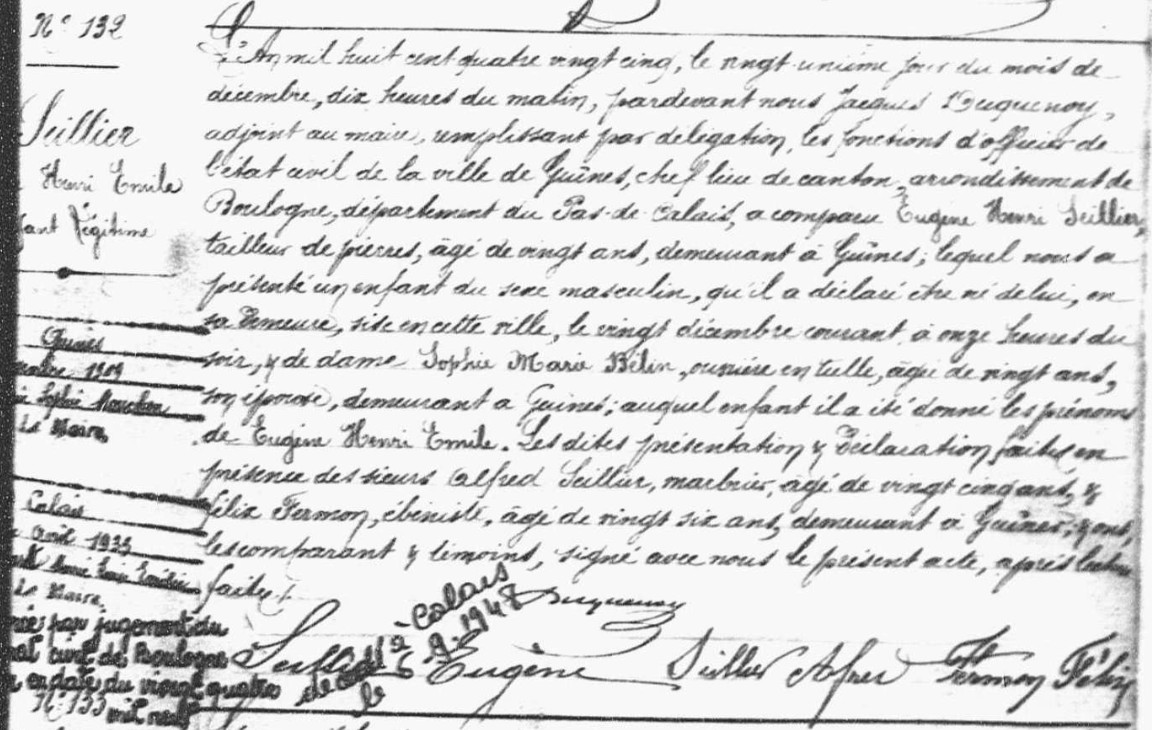 N° 132
Seillier
Henri Emile
fant légitime
Guînes
1909
Sophie Mouchon
Le Maire
Calais
Avril 1935
Le Maire
par jugement du
civil de Boulogne
en date du vingt quatre
mil neuf
N° 133
L'An mil huit cent quatre vingt cinq, le vingt unième jour du mois de
décembre, dix heures du matin, pardevant nous Jacques Duquenoy,
adjoint au maire, remplissant par délégation, les fonctions d'officier de
l'état civil de la ville de Guînes, chef lieu de canton, arrondissement de
Boulogne, département du Pas-de-Calais, a comparu Eugène Henri Seillier,
tailleur de pierres, âgé de vingt ans, demeurant à Guînes; lequel nous a
présenté un enfant du sexe masculin, qu'il a déclaré être né de lui, en
sa demeure, sise en cette ville, le vingt décembre courant à onze heures du
soir, & de dame Sophie Marie Bélin, ouvrière en tulle, âgée de vingt ans,
son épouse, demeurant a Guînes; auquel enfant il a été donné les prénoms
de Eugène Henri Emile. Les dites présentation & déclaration faites en
présence des sieurs Alfred Seillier, marbrier, âgé de vingt cinq ans, &
Félix Fermon, ébéniste, âgé de vingt six ans, demeurant à Guînes; & ont,
les comparant & témoins, signé avec nous le présent acte, après lecture
faite.
Duquenoy
Calais
9-1948
Seillier Eugène Seillier Alfred Fermon Félix